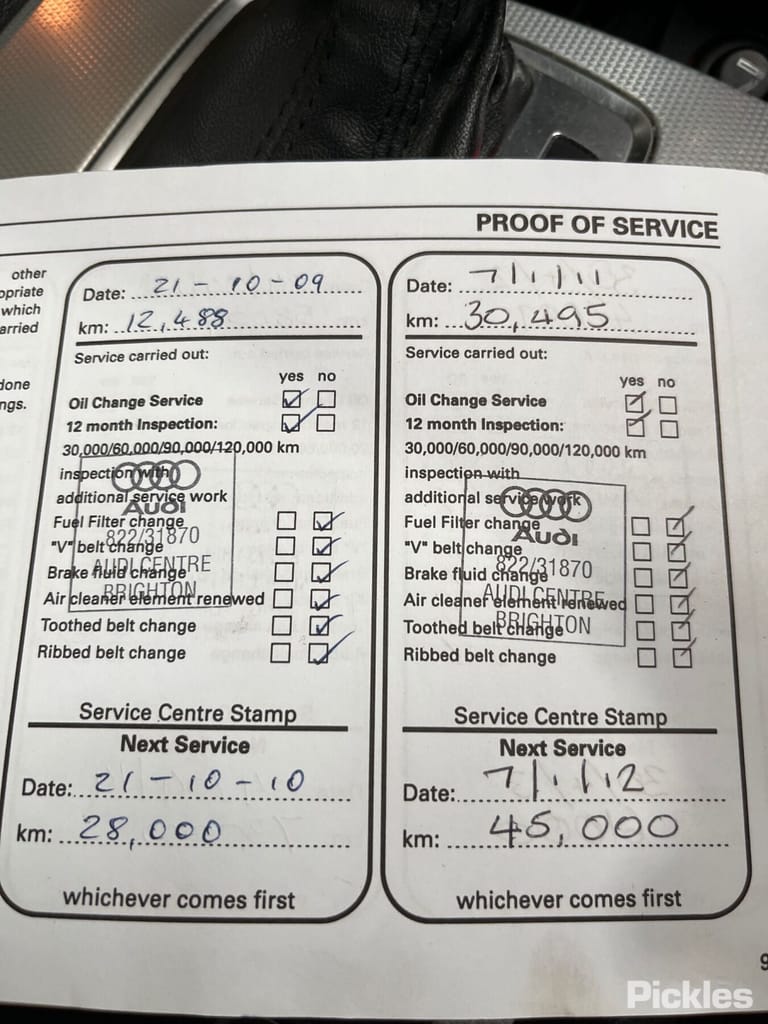 PROOF OF SERVICE
other
opriate
which
arried
done
ngs.
Date: 21 - 10 - 09
km: 12,488
Service carried out:
yes no
Oil Change Service
12 month Inspection:
30,000/60,000/90,000/120,000 km
inspection with
additional service work
Fuel Filter change
"V" belt change
Brake fluid change
Air cleaner element renewed
Toothed belt change
Ribbed belt change
Audi
822/31870
AUDI CENTRE
BRIGHTON
Service Centre Stamp
Next Service
Date: 21 - 10 - 10
km: 28,000
whichever comes first
Date: 7/1/11
km: 30,495
Service carried out:
yes no
Oil Change Service
12 month Inspection:
30,000/60,000/90,000/120,000 km
inspection with
additional service work
Fuel Filter change
"V" belt change
Brake fluid change
Air cleaner element renewed
Toothed belt change
Ribbed belt change
Audi
822/31870
AUDI CENTRE
BRIGHTON
Service Centre Stamp
Next Service
Date: 7/1/12
km: 45,000
whichever comes first
9
Pickles